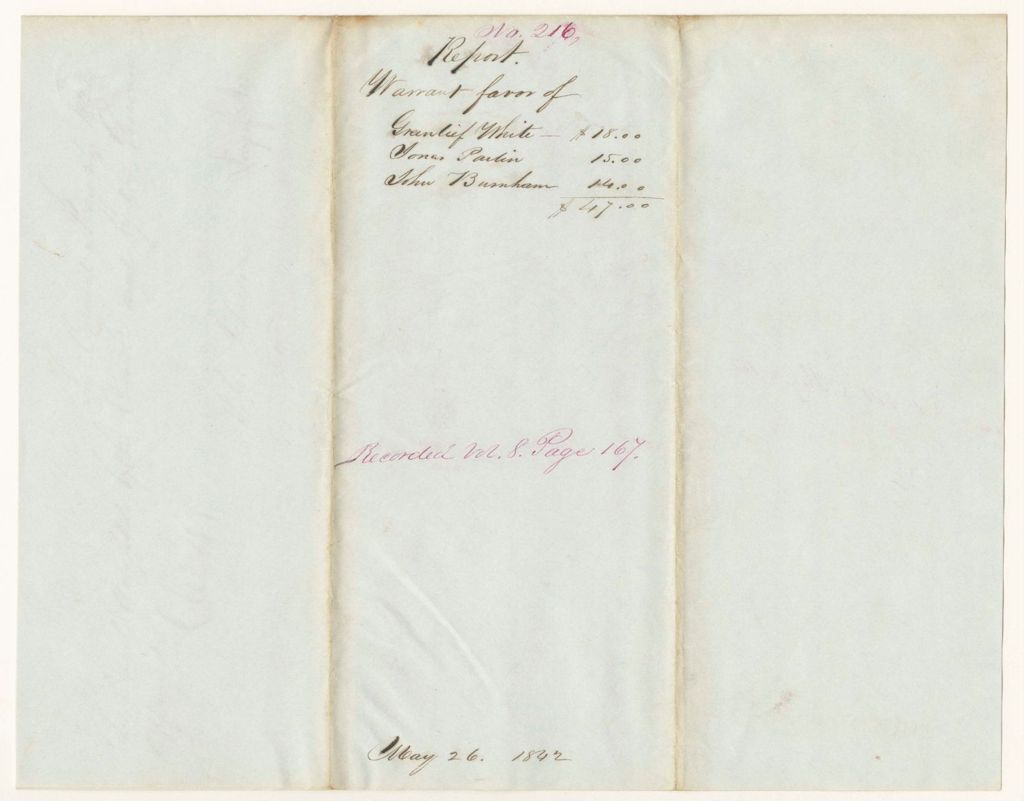 No. 216,
Report.
Warrant favor of
Greenlief White — $18.00
Jonas Parlin 15.00
John Burnham 14.00
$47.00
Recorded Vol. 8. Page 167.
May 26. 1842